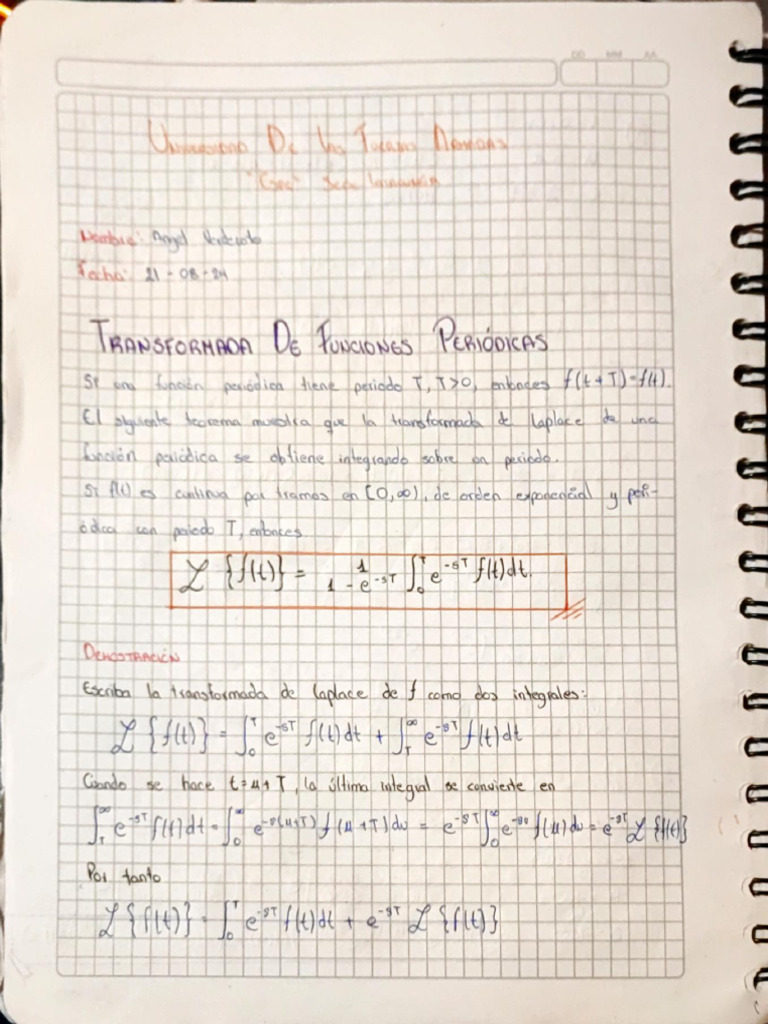 DD MM AA
Universidad De Las Fuerzas Armadas
"Espe" Sede Latacunga
Nombre: Angel
Fecha: 21 - 08 - 24
TRANSFORMADA DE FUNCIONES PERIÓDICAS
Si una función periódica tiene periodo T, T>0, entonces f(t+T)=f(t).
El siguiente teorema muestra que la transformada de Laplace de una
función periódica se obtiene integrando sobre un periodo.
Si f(t) es continua por tramos en [0,∞), de orden exponencial y peri-
ódica con periodo T, entonces
ℒ {f(t)} = 1/(1 - e^-sT) ∫₀^T e^-sT f(t)dt.
DEMOSTRACIÓN
Escriba la transformada de Laplace de f como dos integrales:
ℒ {f(t)} = ∫₀^T e^-sT f(t)dt + ∫_T^∞ e^-sT f(t)dt
Cuando se hace t=u+T, la última integral se convierte en
∫_T^∞ e^-sT f(t)dt = ∫₀^∞ e^-s(u+T) f(u+T)du = e^-sT ∫₀^∞ e^-su f(u)du = e^-sT ℒ {f(t)}
Por tanto
ℒ {f(t)} = ∫₀^T e^-sT f(t)dt + e^-sT ℒ {f(t)}